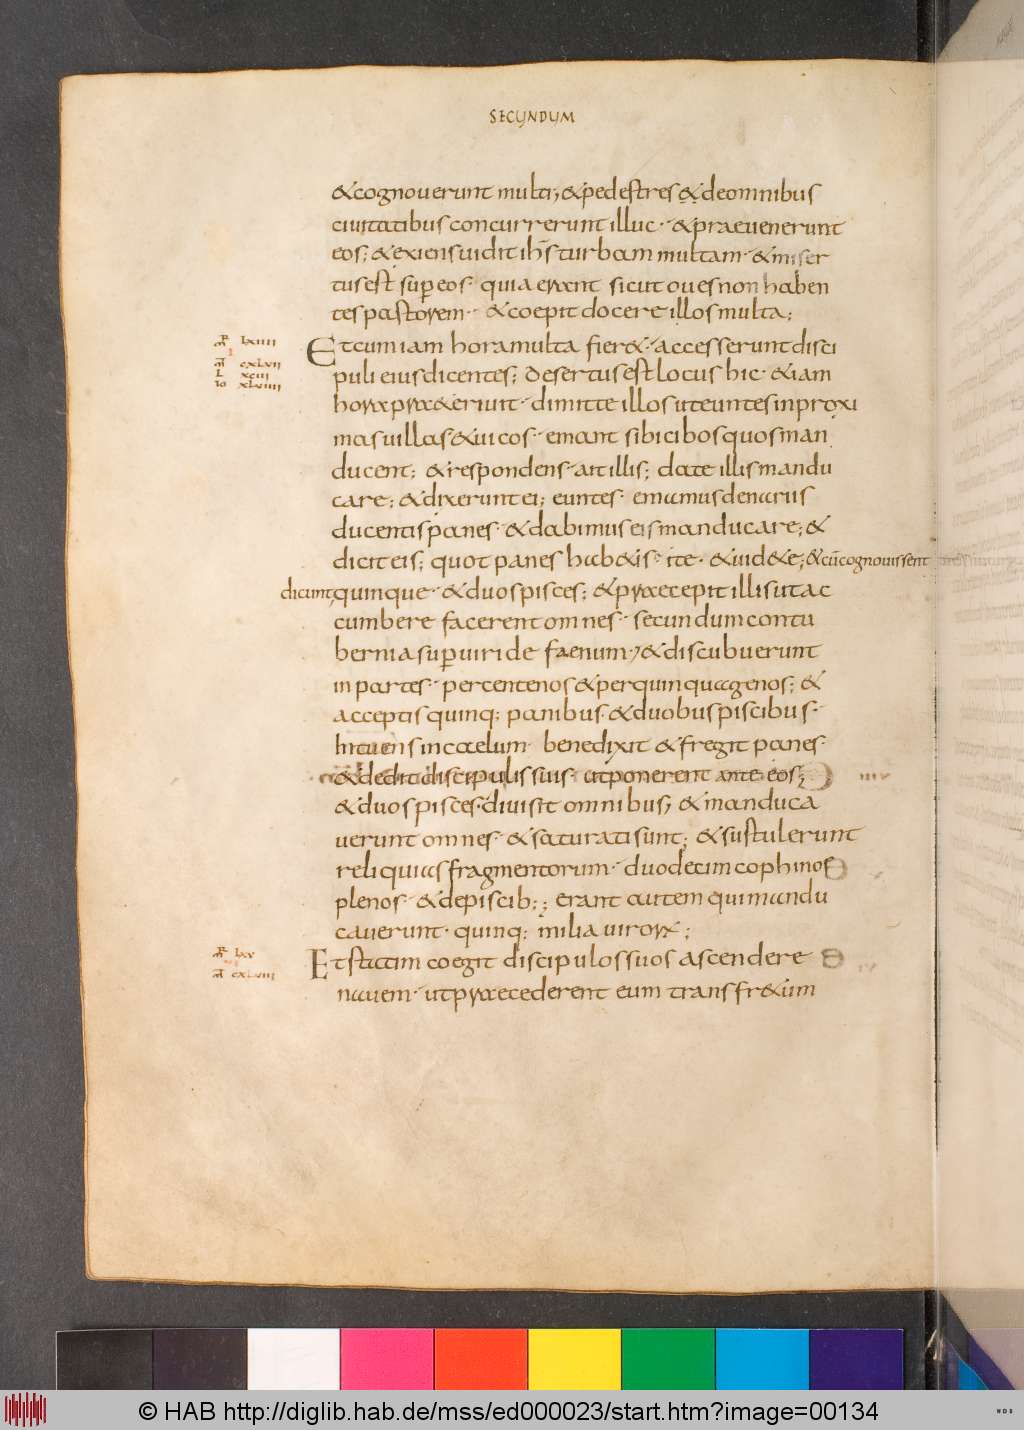 SECUNDUM
&cognouerunt multi; &pedestres &deomnibus
ciuitatibus concurrerunt illuc· &praeuenerunt
eos; &exiens uidit ihs turbam multam· &miser
tus est super eos· quia erant sicut oues non haben
tes pastorem· &coepit docere illos multa;
mr lxiiii
mt cxlvii
L xciii
io xlviiii
Et cum iam hora multa fier&· accesserunt disci
puli eius dicentes; desertus est locus hic· &iam
hora praeteriuit· dimitte illos ut euntes in proxi
mas uillas &uicos· emant sibi cibos quos man
ducent; &respondens ait illis; date illis mandu
care; &dixerunt ei; euntes· emamus denariis
ducentis panes· &dabimus eis manducare; &
dicit eis; quot panes hab&is· ite· &uid&e; &cū cognouissent
dicunt; quinque· &duos pisces; &praecepit illis ut ac
cumbere facerent omnes· secundum contu
bernia super uiride faenum; &discubuerunt
in partes· per centenos &per quinquagenos; &
acceptis quinq; panibus· &duobus piscibus·
Intuens in caelum· benedixit &fregit panes·
&dedit discipulis suis· ut ponerent ante eos;
&duos pisces· diuisit omnibus; &manduca
uerunt omnes· &saturati sunt; &sustulerunt
reliquias fragmentorum· duodecim cophinos
plenos· &de piscib:; erant autem qui mandu
cauerunt· quinq; milia uirorum;
mr lxv
mt cxlviii
Et statim coegit discipulos suos ascendere
nauem· ut praecederent eum trans fr&um
© HAB http://diglib.hab.de/mss/ed000023/start.htm?image=00134